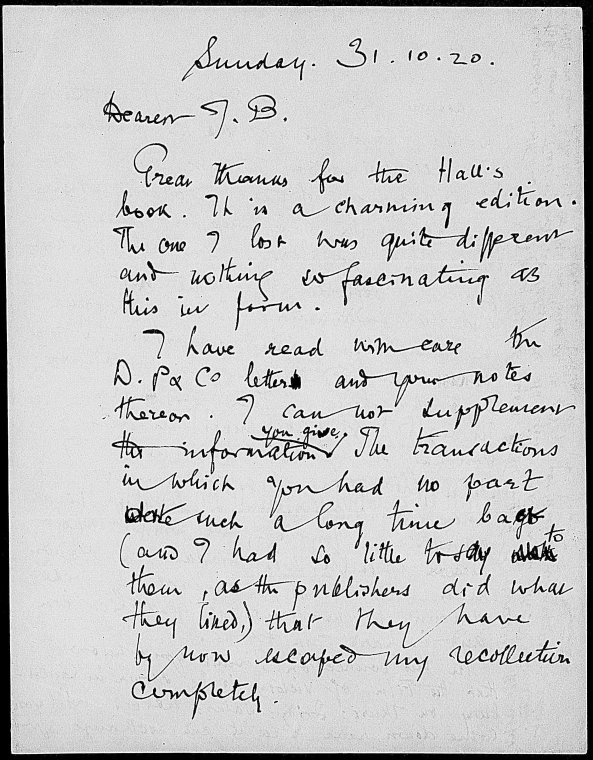 Sunday. 31.10.20.
Dearest J. B.
Great thanks for the Hall's
book. It is a charming edition.
The one I lost was quite different
and nothing so fascinating as
this in form.
I have read with care the
D. P & Co letters and your notes
thereon. I can not supplement
the information you give. The transactions
in which you had no part
were such a long time back
(and I had so little to say to
them, as the publishers did what
they liked,) that they have
by now escaped my recollection
completely.